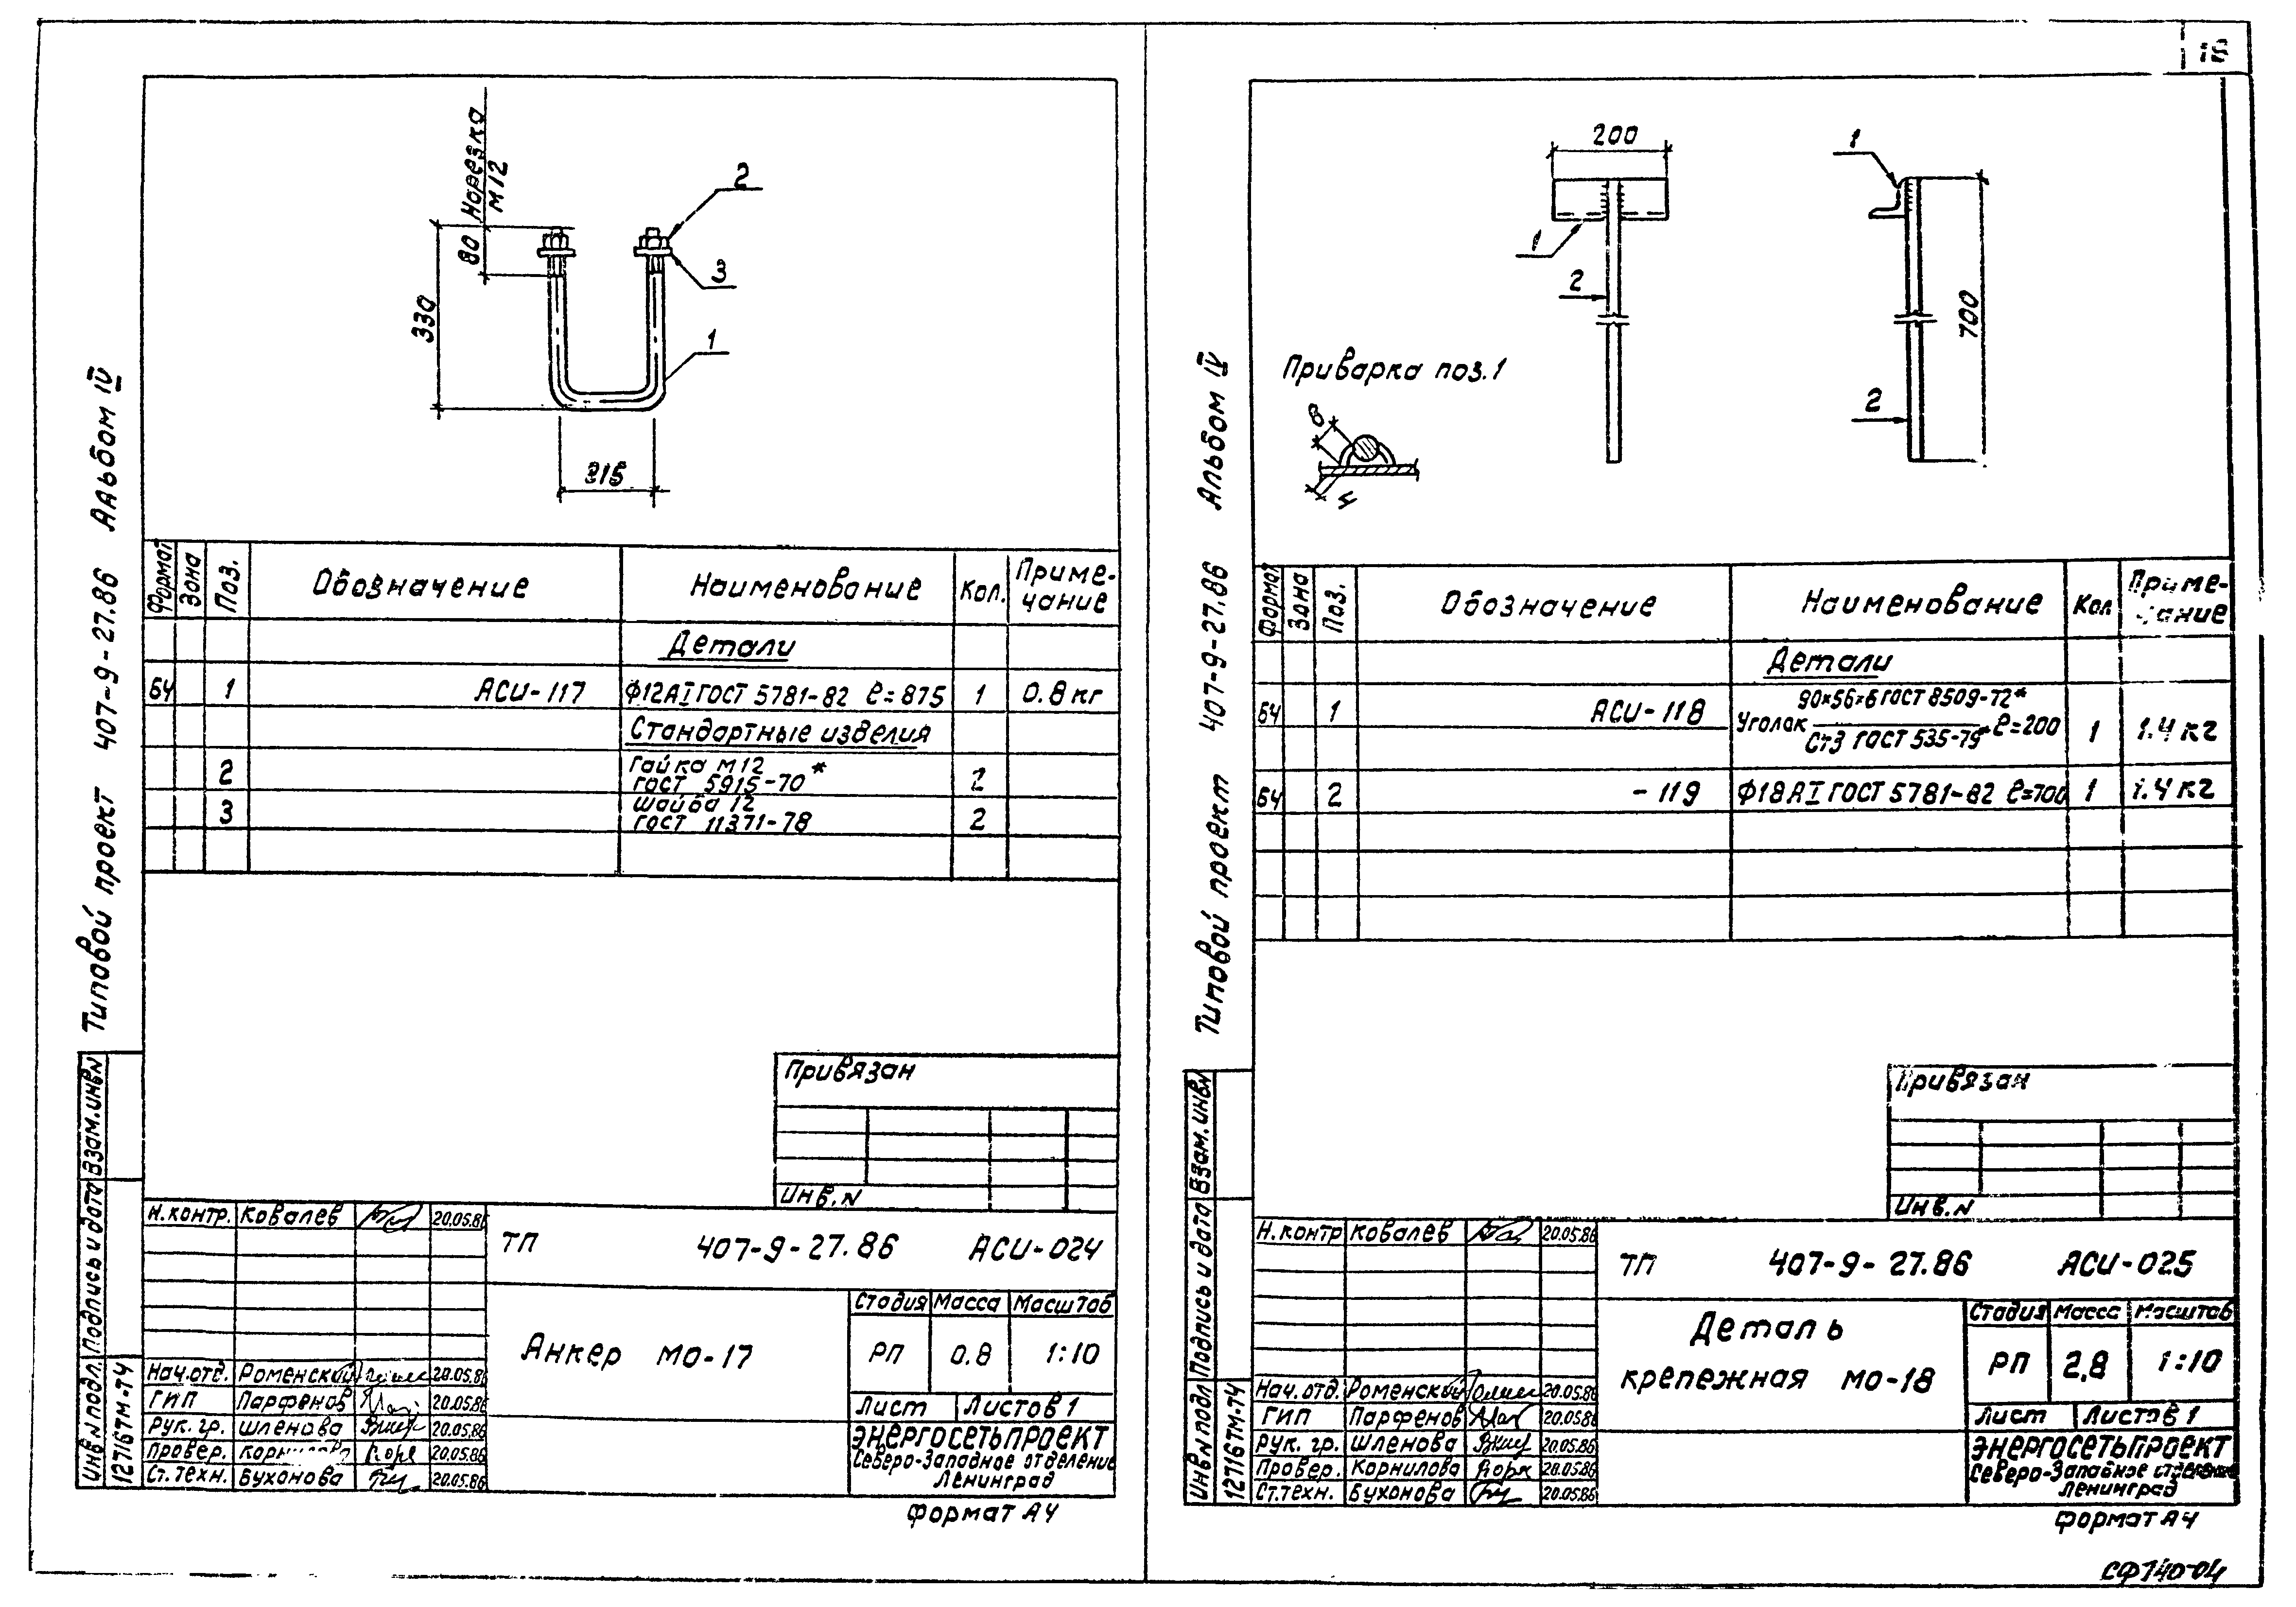 Типовой проект 407-9-27.86 Альбом IV
Нарезка
М12
80
330
315
2
3
1
Формат Зона Поз. Обозначение Наименование Кол. Приме-
чание
Детали
БЧ 1 АСИ-117 Ф12АI ГОСТ 5781-82 ℓ=875 1 0.8 кг
Стандартные изделия
2 Гайка М12
ГОСТ 5915-70* 2
3 Шайба 12
ГОСТ 11371-78 2
Привязан
Инв.N
Взам.инвN
Подпись и дата
Инв N подл.
12716ТМ-Т4
Н.контр. Ковалев 20.05.86
Нач.отд. Роменский 20.05.86
ГИП Парфенов 20.05.86
Рук. гр. Шленова 20.05.86
Провер. 20.05.86
Ст.техн. Буханова 20.05.86
ТП 407-9-27.86 АСИ-024
Анкер МО-17
Стадия Масса Масштаб
РП 0.8 1:10
Лист Листов 1
ЭНЕРГОСЕТЬПРОЕКТ
Северо-Западное отделение
Ленинград
Формат А4
Типовой проект 407-9-27.86 Альбом IV
200
1
2
1
2
700
Приварка поз.1
8
4
Формат Зона Поз. Обозначение Наименование Кол Приме-
чание
Детали
БЧ 1 АСИ-118 Уголок 90×56×6 ГОСТ 8509-72*
Ст3 ГОСТ 535-79* ℓ=200 1 1.4 кг
БЧ 2 -119 Ф18АI ГОСТ 5781-82 ℓ=700 1 1.4 кг
Привязан
Инв.N
Взам.инвN
Подпись и дата
Инв N подл
12716ТМ-Т4
Н.контр Ковалев 20.05.86
Нач.отд. Роменский 20.05.86
ГИП Парфенов 20.05.86
Рук. гр. Шленова 20.05.86
Провер. Корнилова 20.05.86
Ст.техн. Буханова 20.05.86
ТП 407-9-27.86 АСИ-025
Деталь
крепежная МО-18
Стадия Масса Масштаб
РП 2,8 1:10
Лист Листов 1
ЭНЕРГОСЕТЬПРОЕКТ
Северо-Западное отделение
Ленинград
Формат А4
СФ740-04